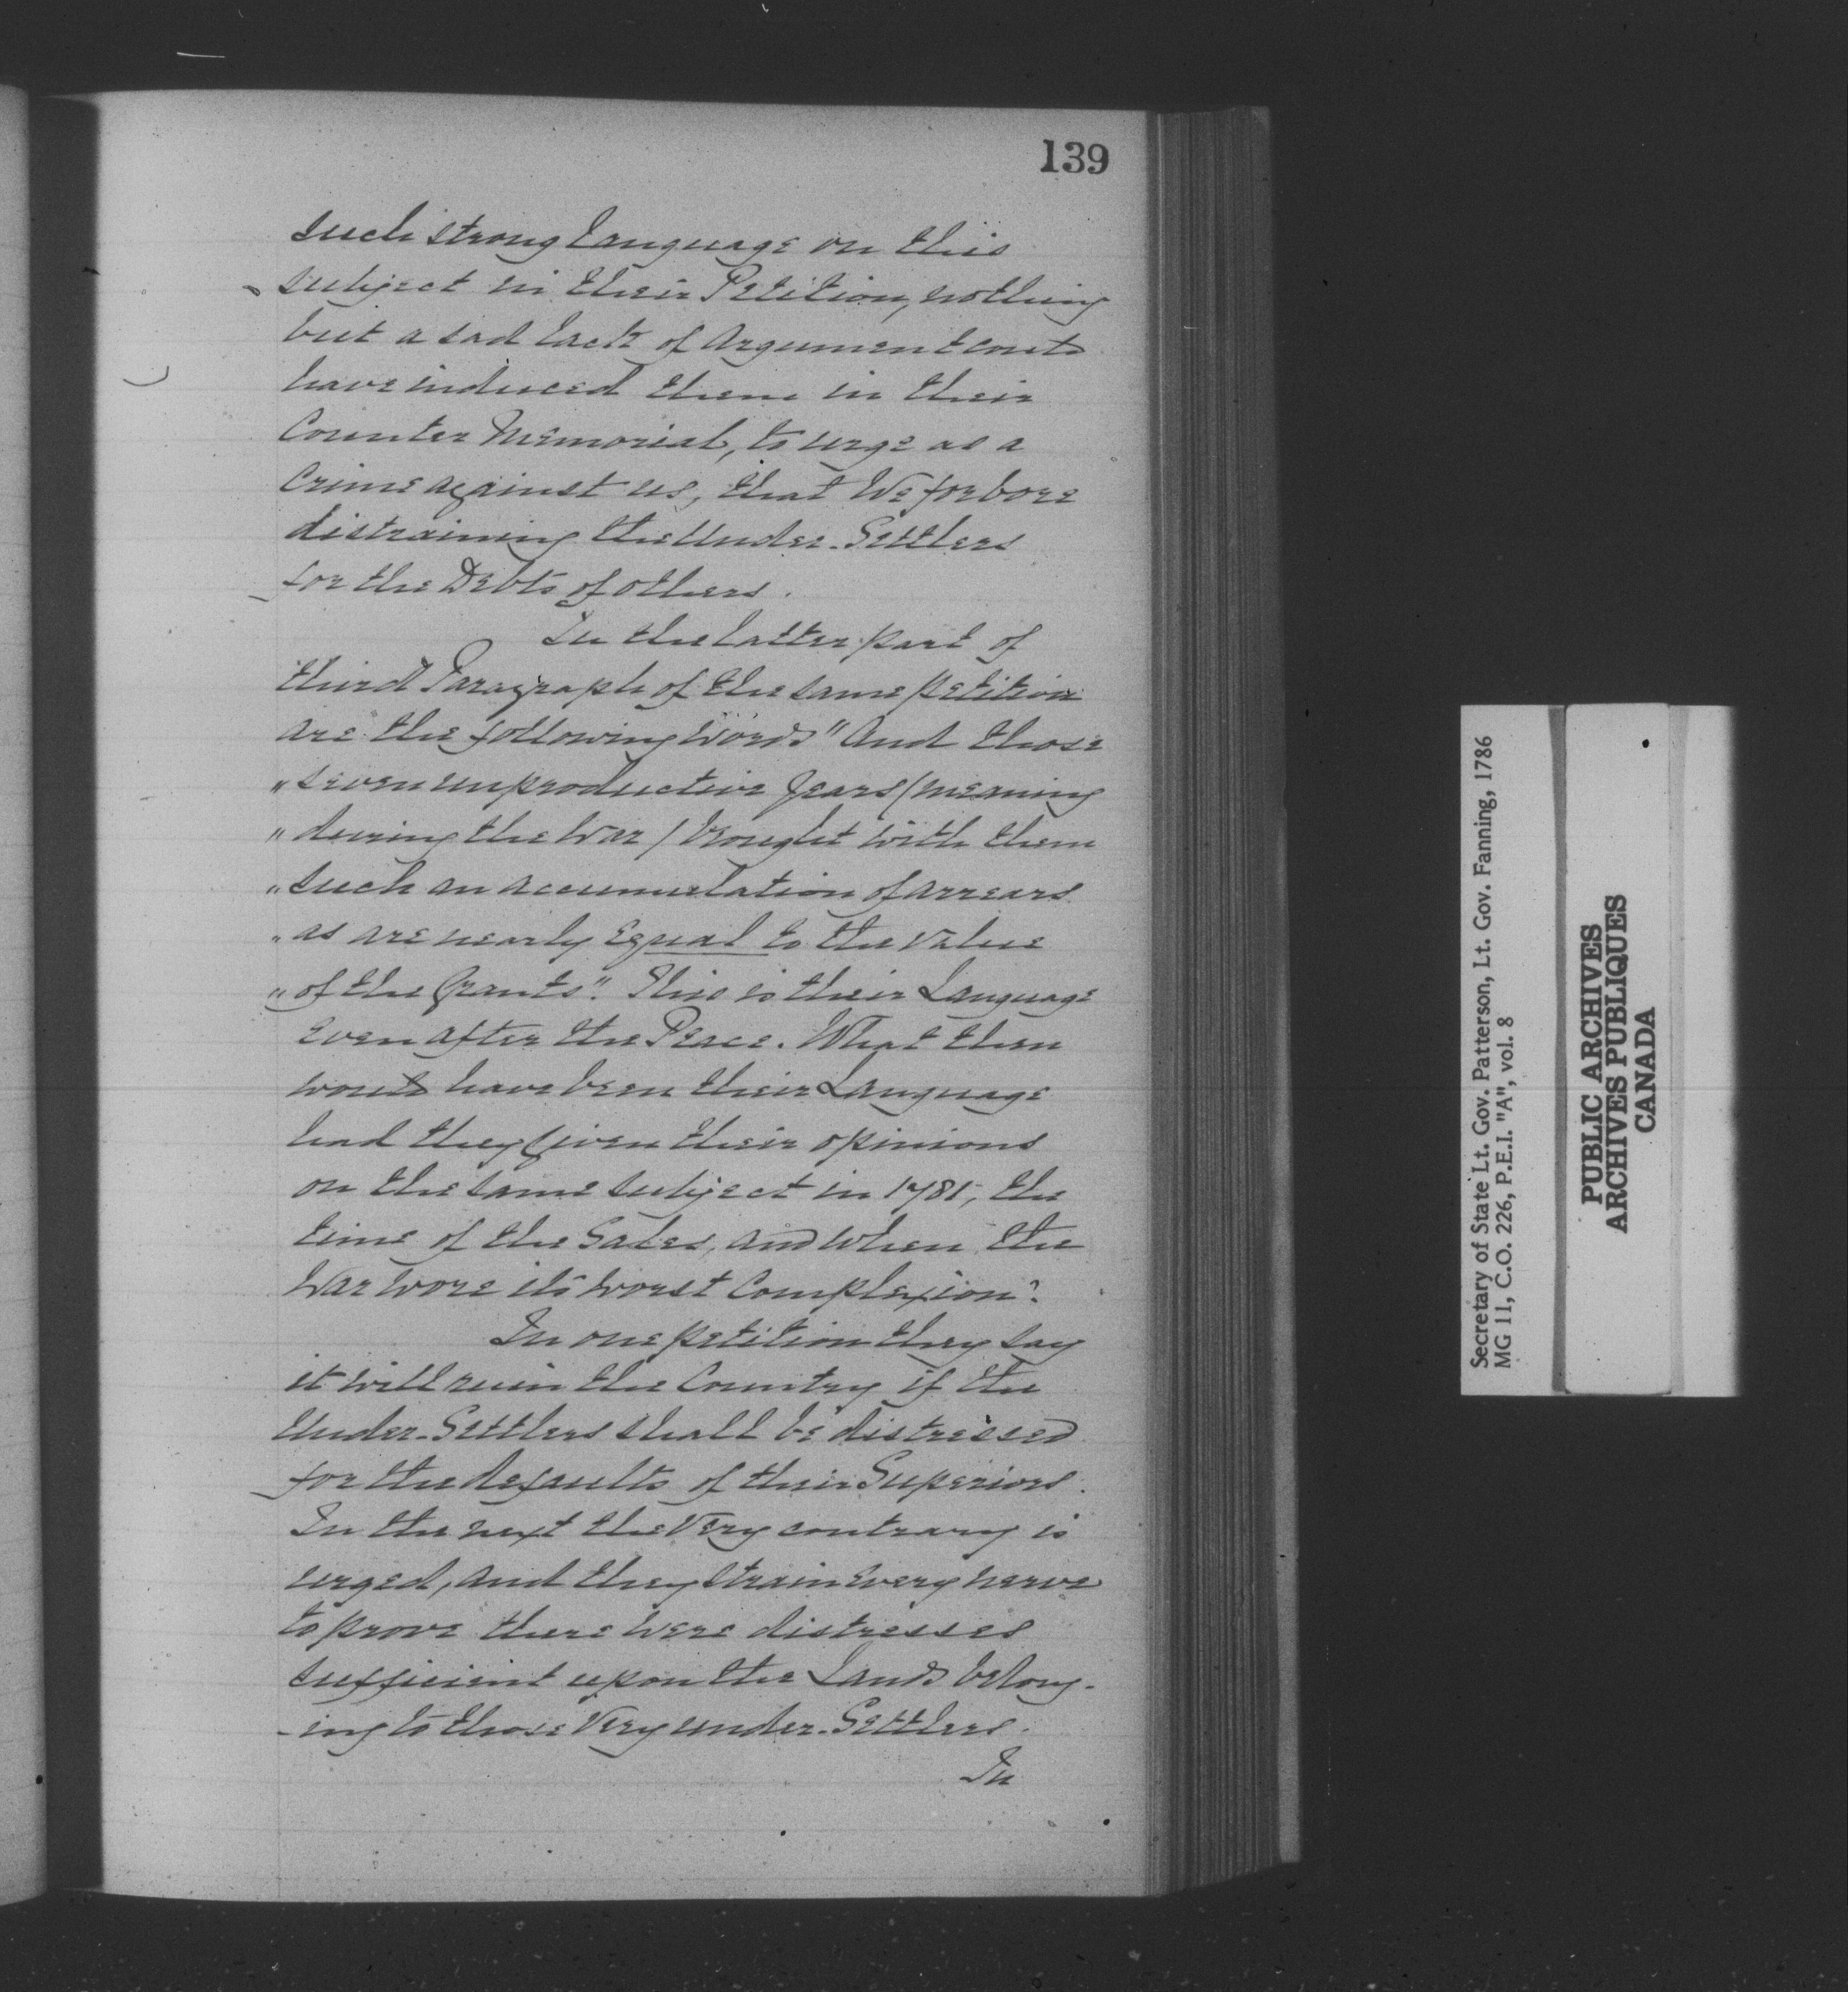 139
such strong language on this
subject in their Petition, nothing
but a sad lack of Argument could
have induced them in their
Counter Memorial, to urge as a
Crime against us, that We forbore
distraining the Under-Settlers
for the Debts of others.
In the latter part of
third Paragraph of the same petition
are the following Words "And those
"seven unproductive Years (meaning
"during the War) brought with them
"such an accumulation of arrears
"as are nearly Equal to the Value
"of the Grants". This is their Language
Even after the Peace. What then
would have been their Language
had they Given their opinions
on the same subject in 1781, the
time of the Sales, and when the
War wore its worst Complexion?
In one petition they say
it will ruin the Country if the
Under-Settlers shall be distressed
for the defaults of their Superiors.
In the next the Very contrary is
urged, and they Strain Every nerve
to prove there were distresses
sufficient upon the Lands belong-
-ing to those Very under-Settlers.
In
Secretary of State Lt. Gov. Patterson, Lt. Gov. Fanning, 1786
MG 11, C.O. 226, P.E.I. "A", vol. 8
PUBLIC ARCHIVES
ARCHIVES PUBLIQUES
CANADA